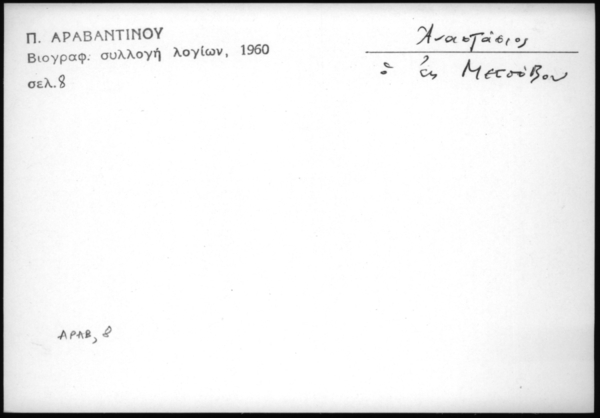 Π. ΑΡΑΒΑΝΤΙΝΟΥ
Βιογραφ. συλλογή λογίων, 1960
σελ. 8
Ἀναστάσιος
ὁ ἐκ Μετσόβου
ΑΡΑΒ, 8